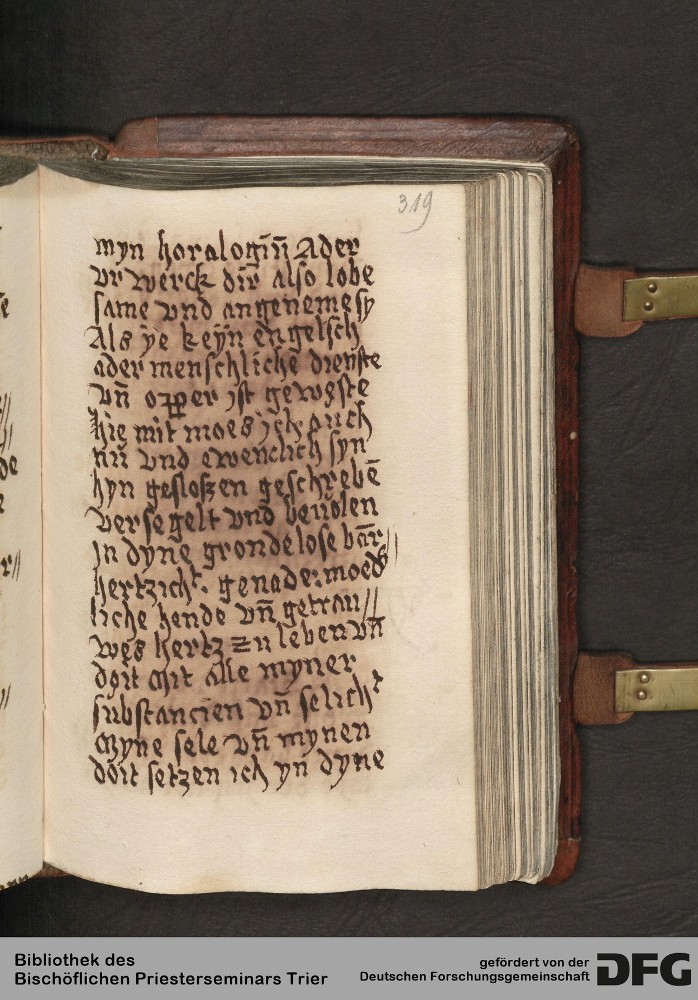 319
myn horalogiū Ader
vr werck dir̄ also lobe
same vnd angenemesy
Als ye keyn engelsch
ader menschlichē dienste
vn̄ opper ist geweste
hie mit moes ich auch
nū vnd ewenclich syn
hyn gesloszen geschrebē
versegelt vnd beuolen
Jn dyne grondelose bar̄//
hertzich^t. genade: moed^s
liche hende vn̄ getrau//
wes hertz zu leben vn̄
doit Mit alle myner
substancien vn̄ selich^t
Myne sele vn̄ mynen
doit setzen ich yn dyne
Bibliothek des
Bischöflichen Priesterseminars Trier
gefördert von der
Deutschen Forschungsgemeinschaft
DFG